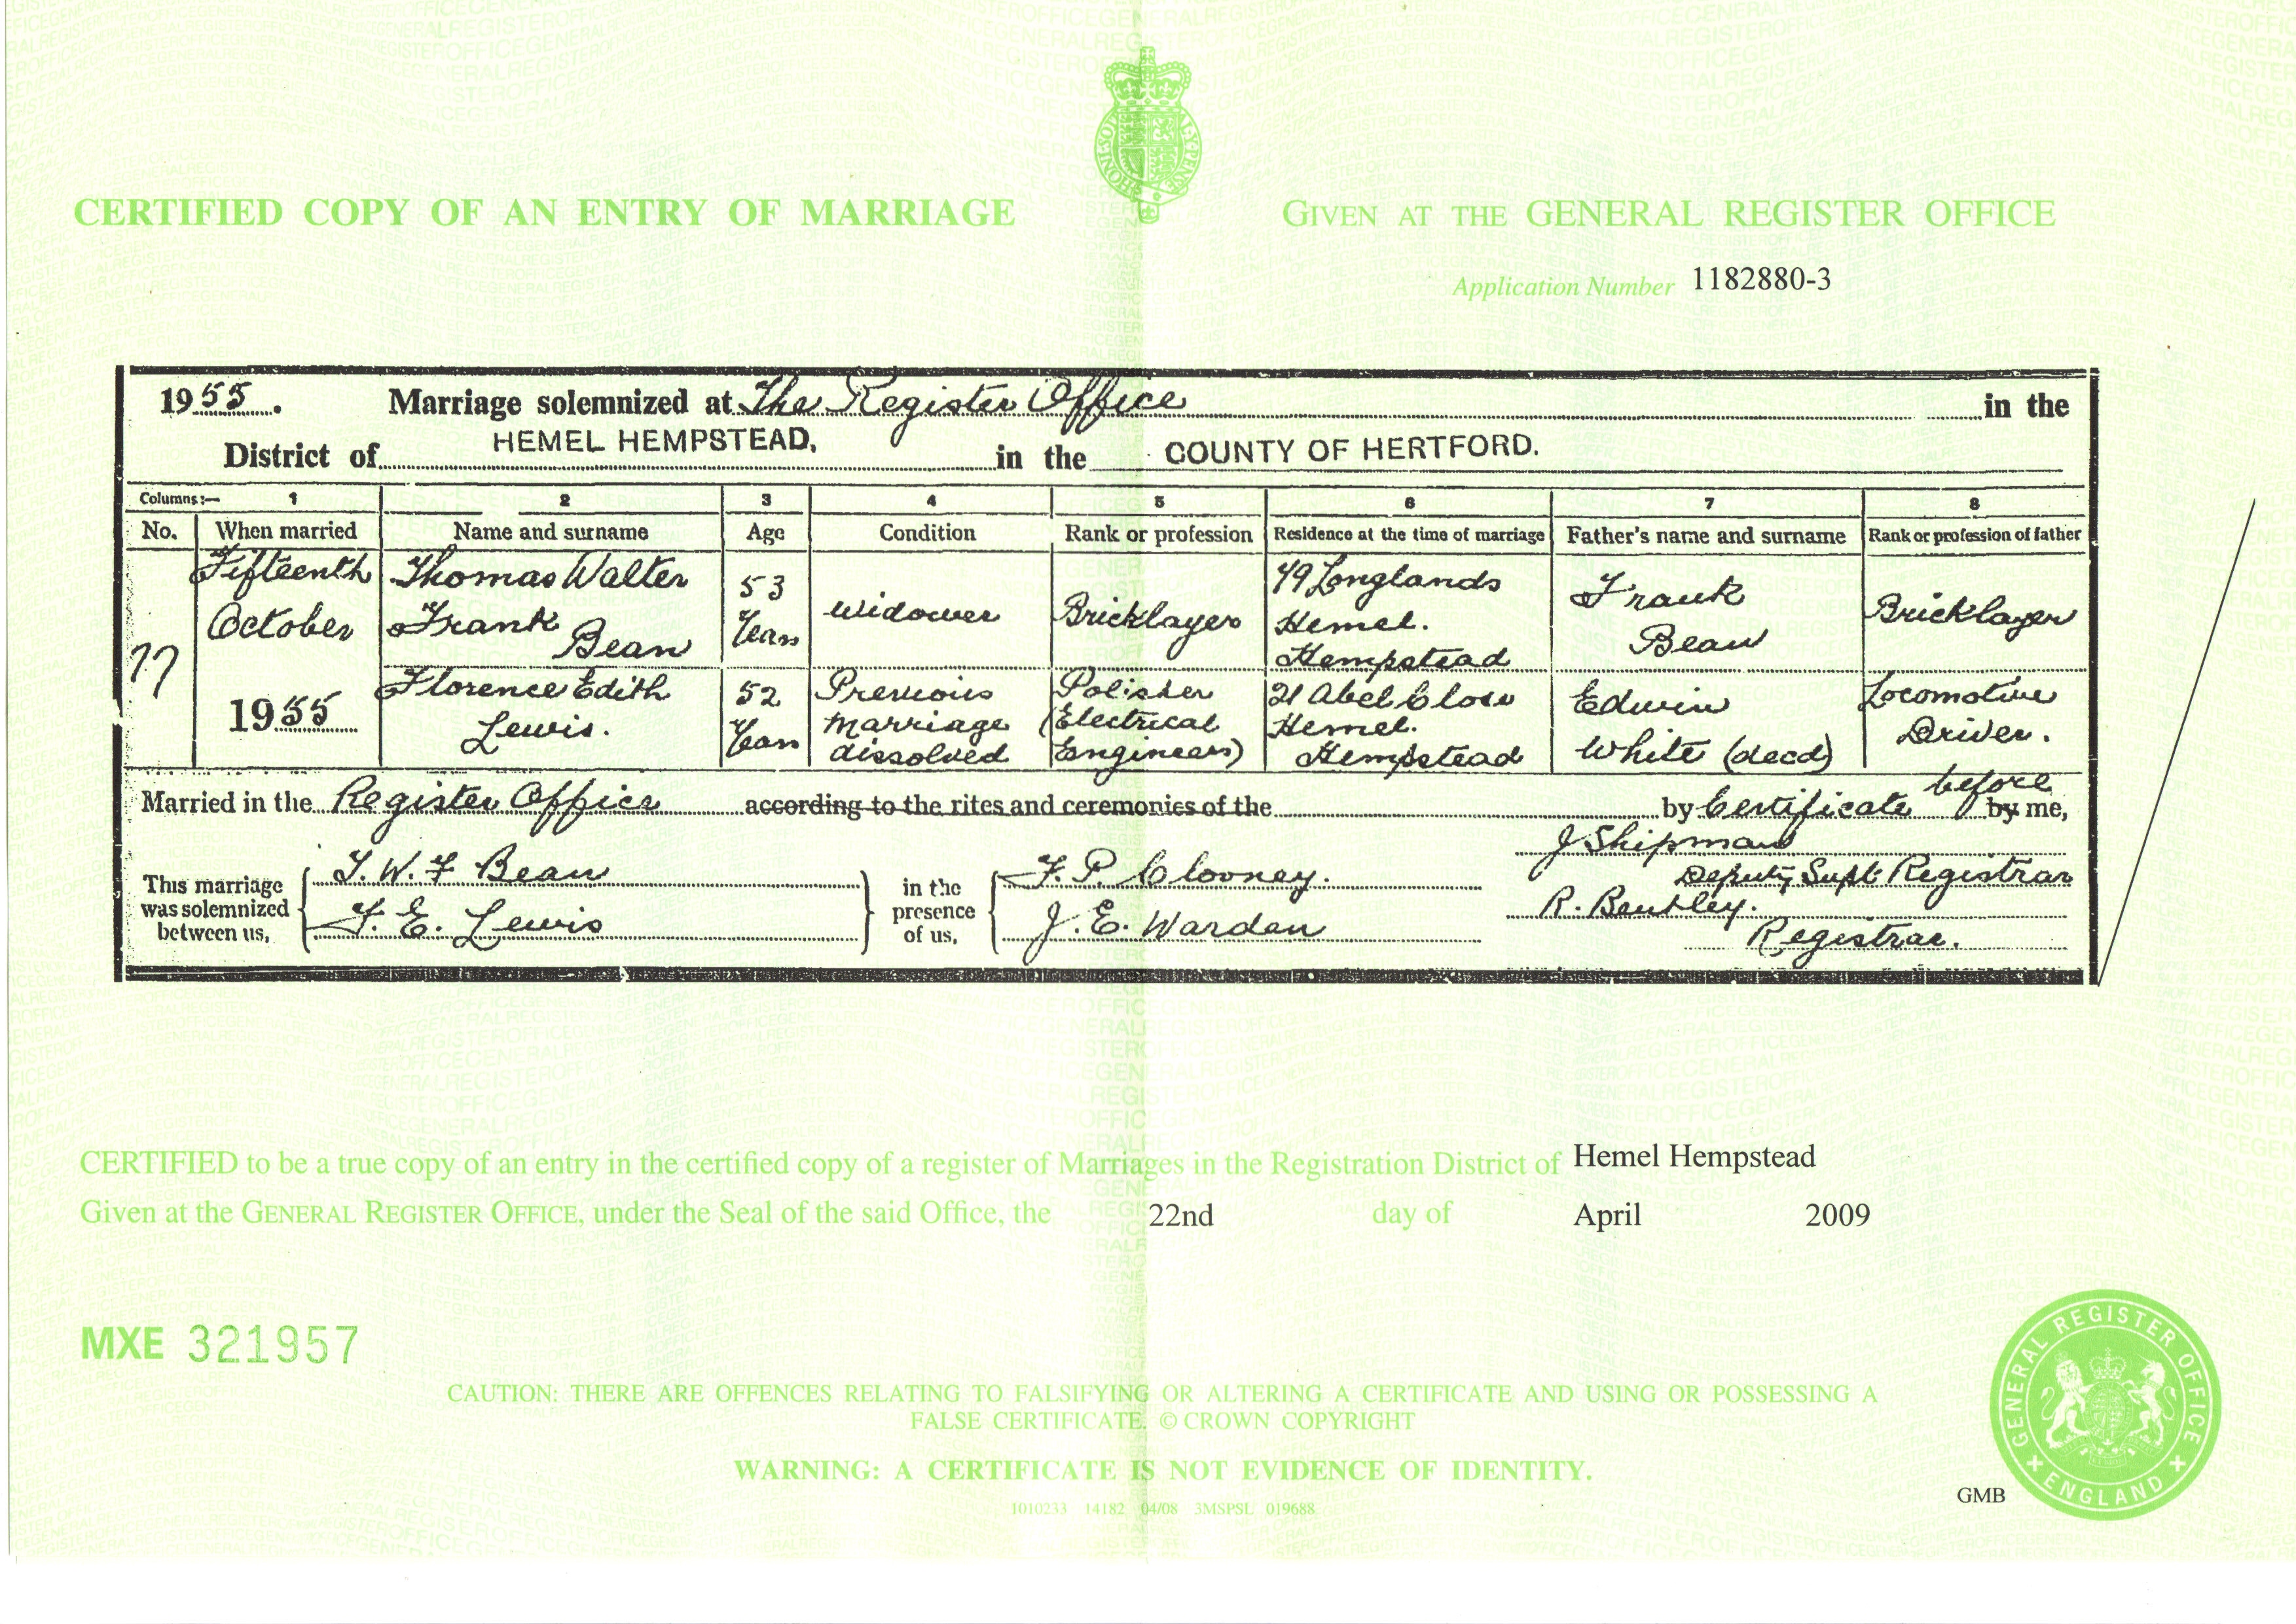 CERTIFIED COPY OF AN ENTRY OF MARRIAGE
GIVEN AT THE GENERAL REGISTER OFFICE
Application Number 1182880-3
1955. Marriage solemnized at The Register Office in the
District of HEMEL HEMPSTEAD, in the COUNTY OF HERTFORD.
Columns:— 1 2 3 4 5 6 7 8
No. When married Name and surname Age Condition Rank or profession Residence at the time of marriage Father's name and surname Rank or profession of father
77
Fifteenth
October
1955
Thomas Walter
Frank
Bean
53
Years
Widower
Bricklayer
79 Longlands
Hemel.
Hempstead
Frank
Bean
Bricklayer
Florence Edith
Lewis.
52
Years
Previous
marriage
dissolved
Polisher
(Electrical
Engineers)
21 Abel Close
Hemel.
Hempstead
Edwin
White (decd)
Locomotive
Driver.
Married in the Register Office according to the rites and ceremonies of the by Certificate before by me,
This marriage
was solemnized
between us,
T. W. F Bean
F. E. Lewis
in the
presence
of us,
F. P. Clooney.
J. E. Warden
J Shipman
Deputy Supt Registrar
R. Bentley.
Registrar.
CERTIFIED to be a true copy of an entry in the certified copy of a register of Marriages in the Registration District of Hemel Hempstead
Given at the GENERAL REGISTER OFFICE, under the Seal of the said Office, the 22nd day of April 2009
MXE 321957
CAUTION: THERE ARE OFFENCES RELATING TO FALSIFYING OR ALTERING A CERTIFICATE AND USING OR POSSESSING A
FALSE CERTIFICATE. © CROWN COPYRIGHT
WARNING: A CERTIFICATE IS NOT EVIDENCE OF IDENTITY.
1010233 14182 04/08 3MSPSL 019688
GMB
GENERAL REGISTER OFFICE
ENGLAND